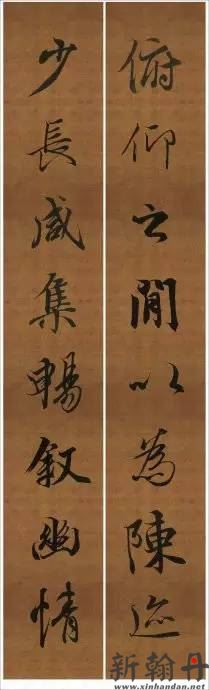 俯仰之間以為陳迹
少長咸集暢叙幽情
新翰丹
www.xinhandan.net